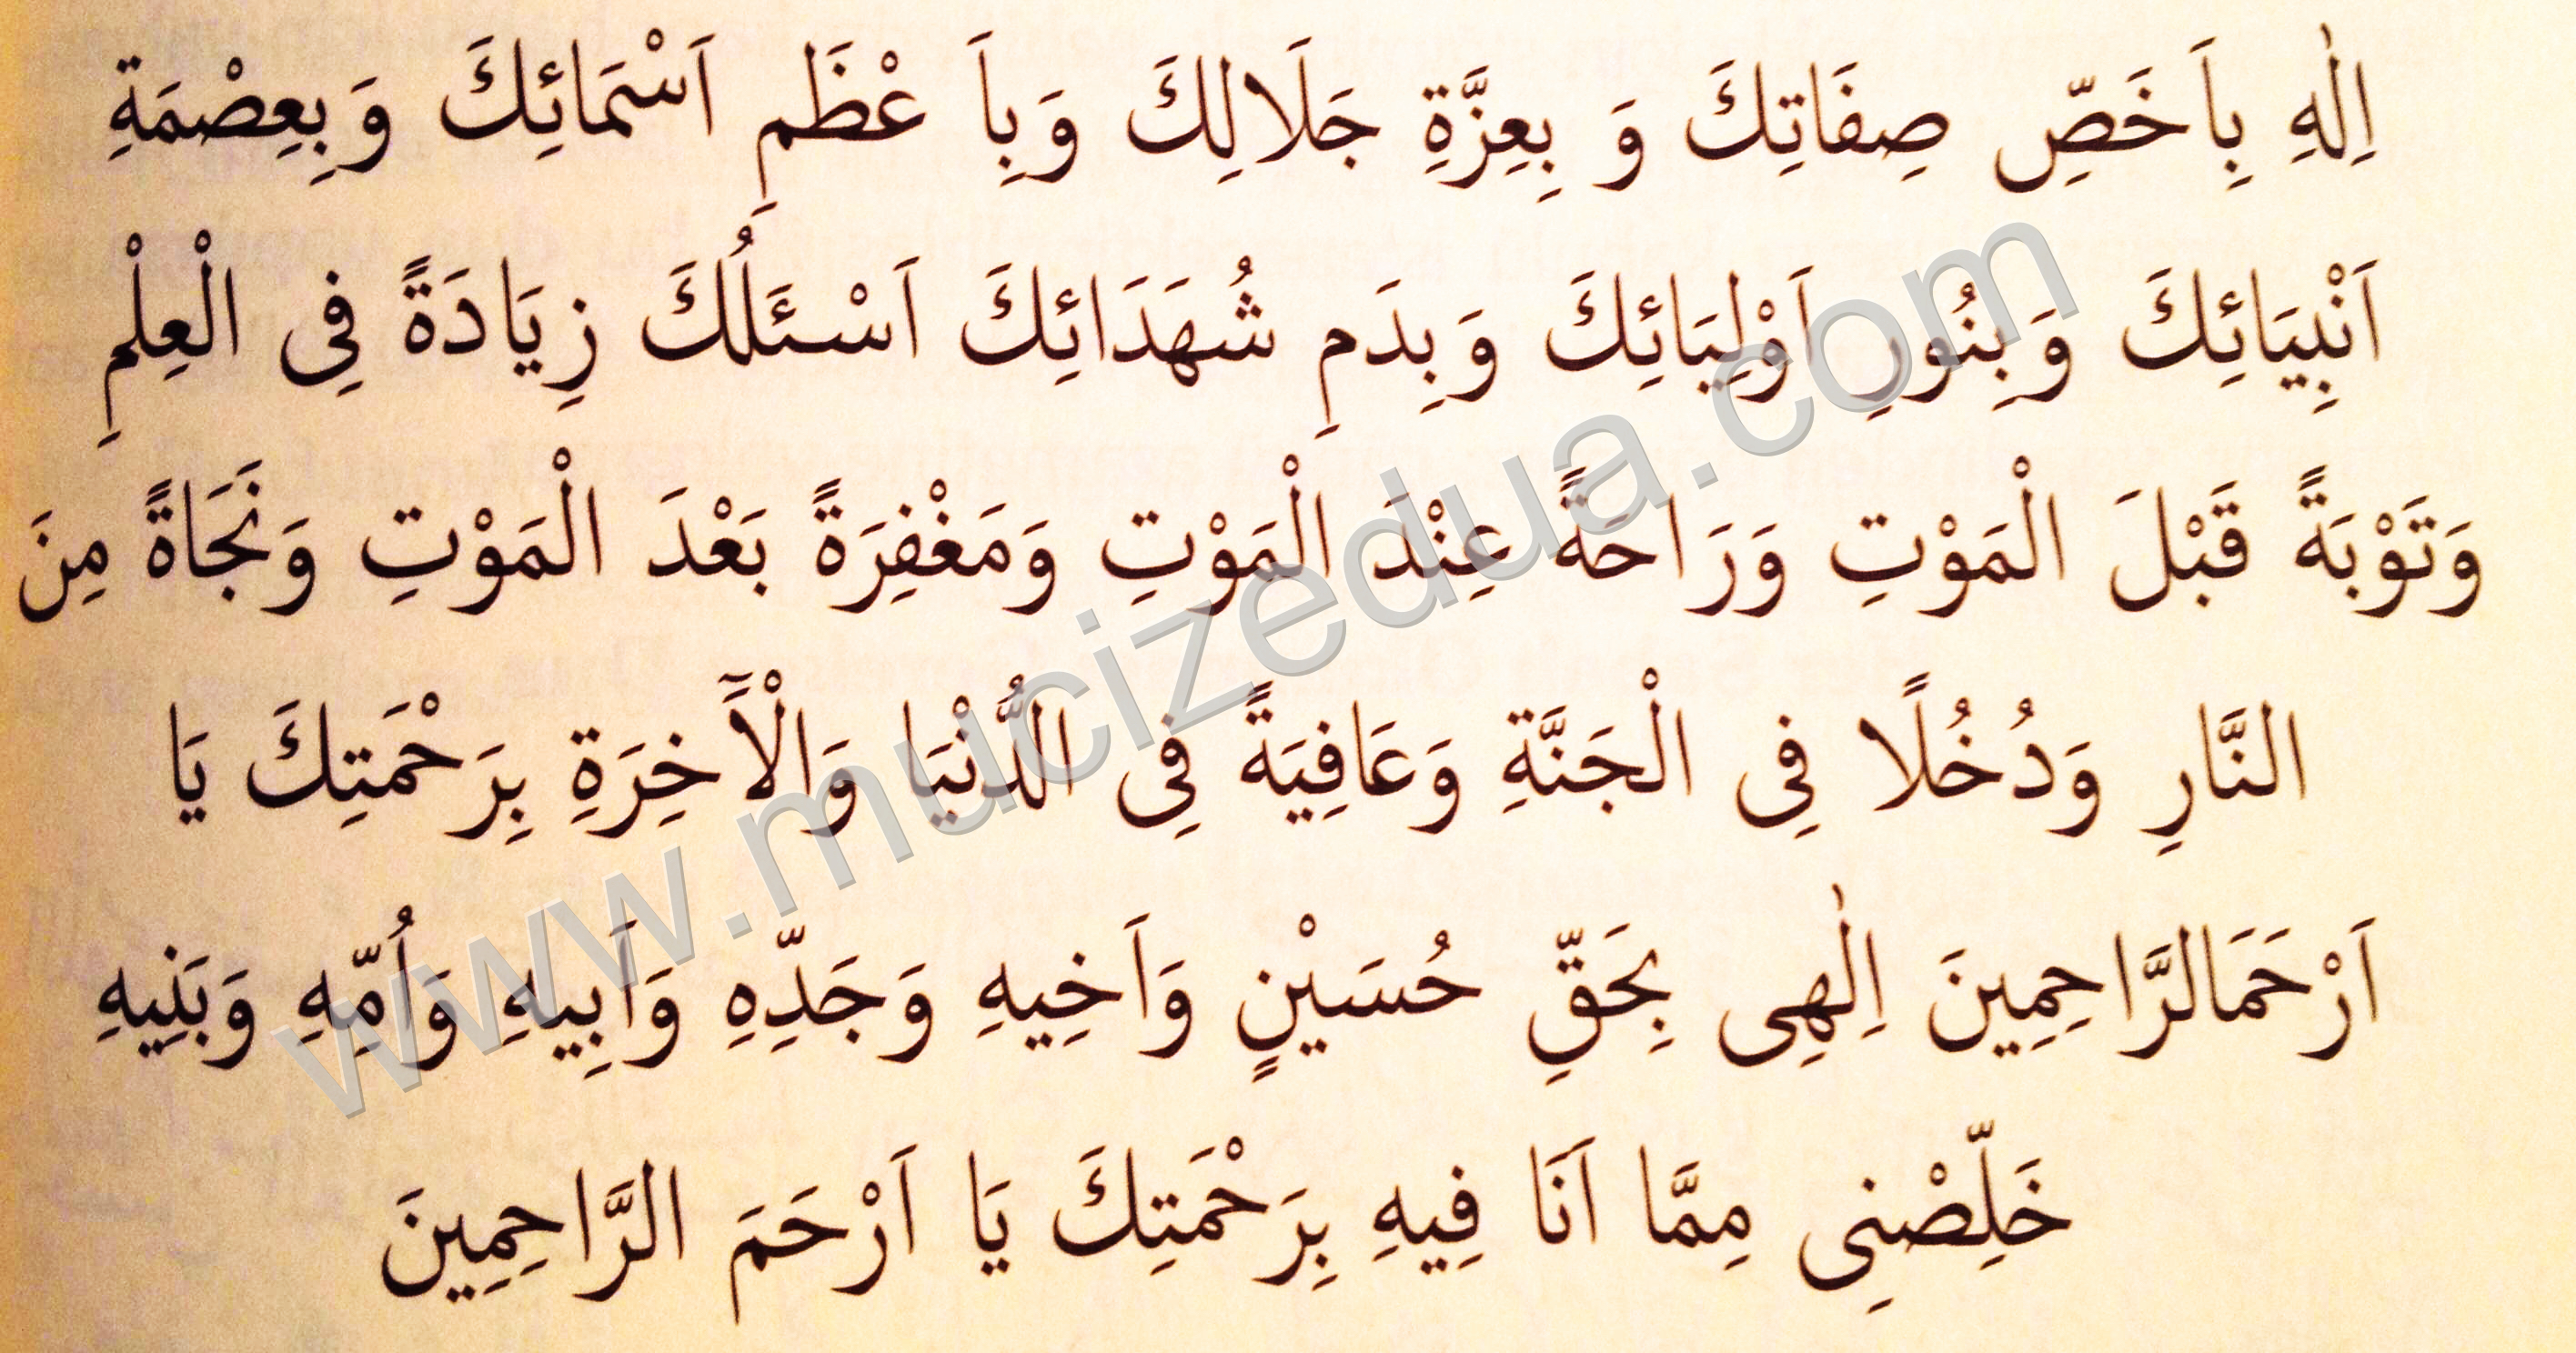 اِلٰهِ بِاَخَصِّ صِفَاتِكَ وَ بِعِزَّةِ جَلَالِكَ وَبِاَ عْظَمِ اَسْمَائِكَ وَبِعِصْمَةِ
اَنْبِيَائِكَ وَبِنُورِ اَوْلِيَائِكَ وَبِدَمِ شُهَدَائِكَ اَسْئَلُكَ زِيَادَةً فِى الْعِلْمِ
وَتَوْبَةً قَبْلَ الْمَوْتِ وَرَاحَةً عِنْدَ الْمَوْتِ وَمَغْفِرَةً بَعْدَ الْمَوْتِ وَنَجَاةً مِنَ
النَّارِ وَدُخُلًا فِى الْجَنَّةِ وَعَافِيَةً فِى الدُّنْيَا وَالْآَخِرَةِ بِرَحْمَتِكَ يَا
اَرْحَمَالرَّاحِمِينَ اِلٰهِى بِحَقِّ حُسَيْنٍ وَاَخِيهِ وَجَدِّهِ وَاَبِيهِ وَاُمِّهِ وَبَنِيهِ
خَلِّصْنِى مِمَّا اَنَا فِيهِ بِرَحْمَتِكَ يَا اَرْحَمَ الرَّاحِمِينَ
www.mucizedua.com